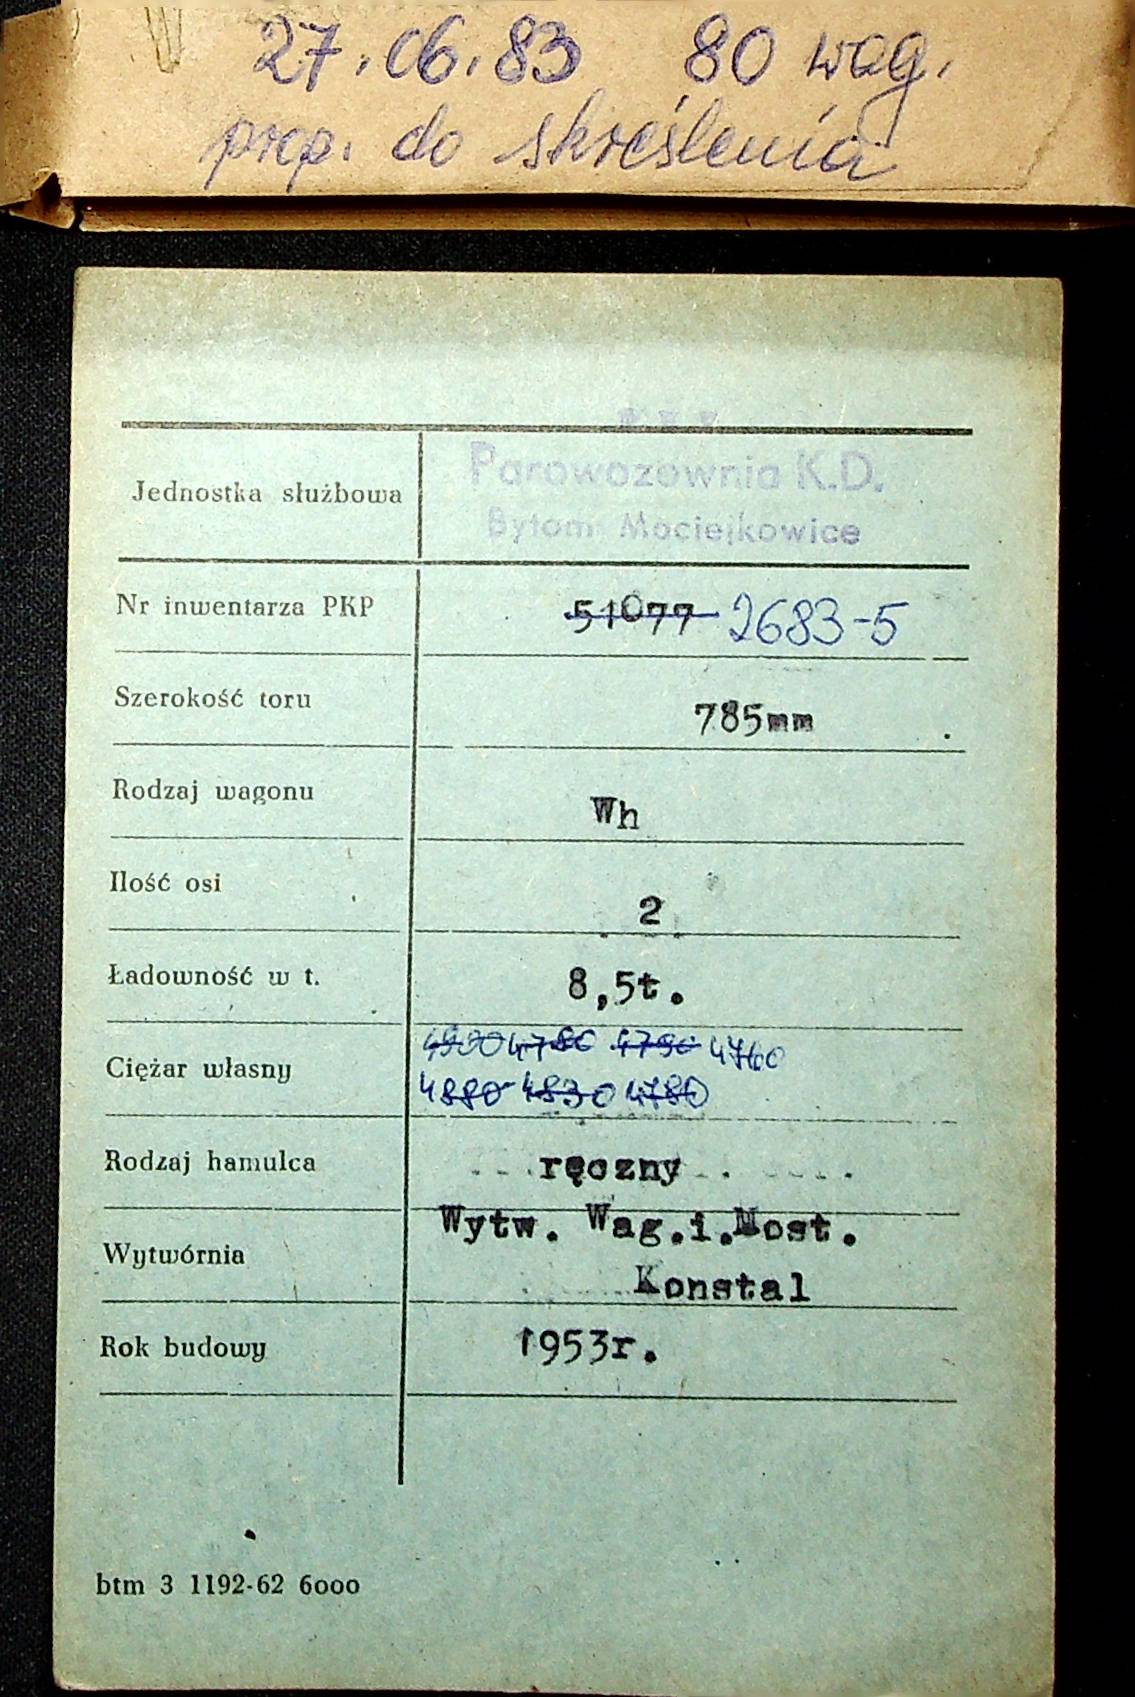 27.06.83 80 wag.
prop. do skreślenia
P K P
Parowozownia K.D.
Jednostka służbowa
Bytom Maciejkowice
Nr inwentarza PKP 51077 2683-5
Szerokość toru 785mm
Rodzaj wagonu Wh
Ilość osi 2
Ładowność w t. 8,5t.
4900 4780 4790 4760
Ciężar własny
4880 4830 4780
Rodzaj hamulca ręczny
Wytw. Wag.i.Most.
Wytwórnia
Konstal
Rok budowy 1953r.
btm 3 1192-62 6000